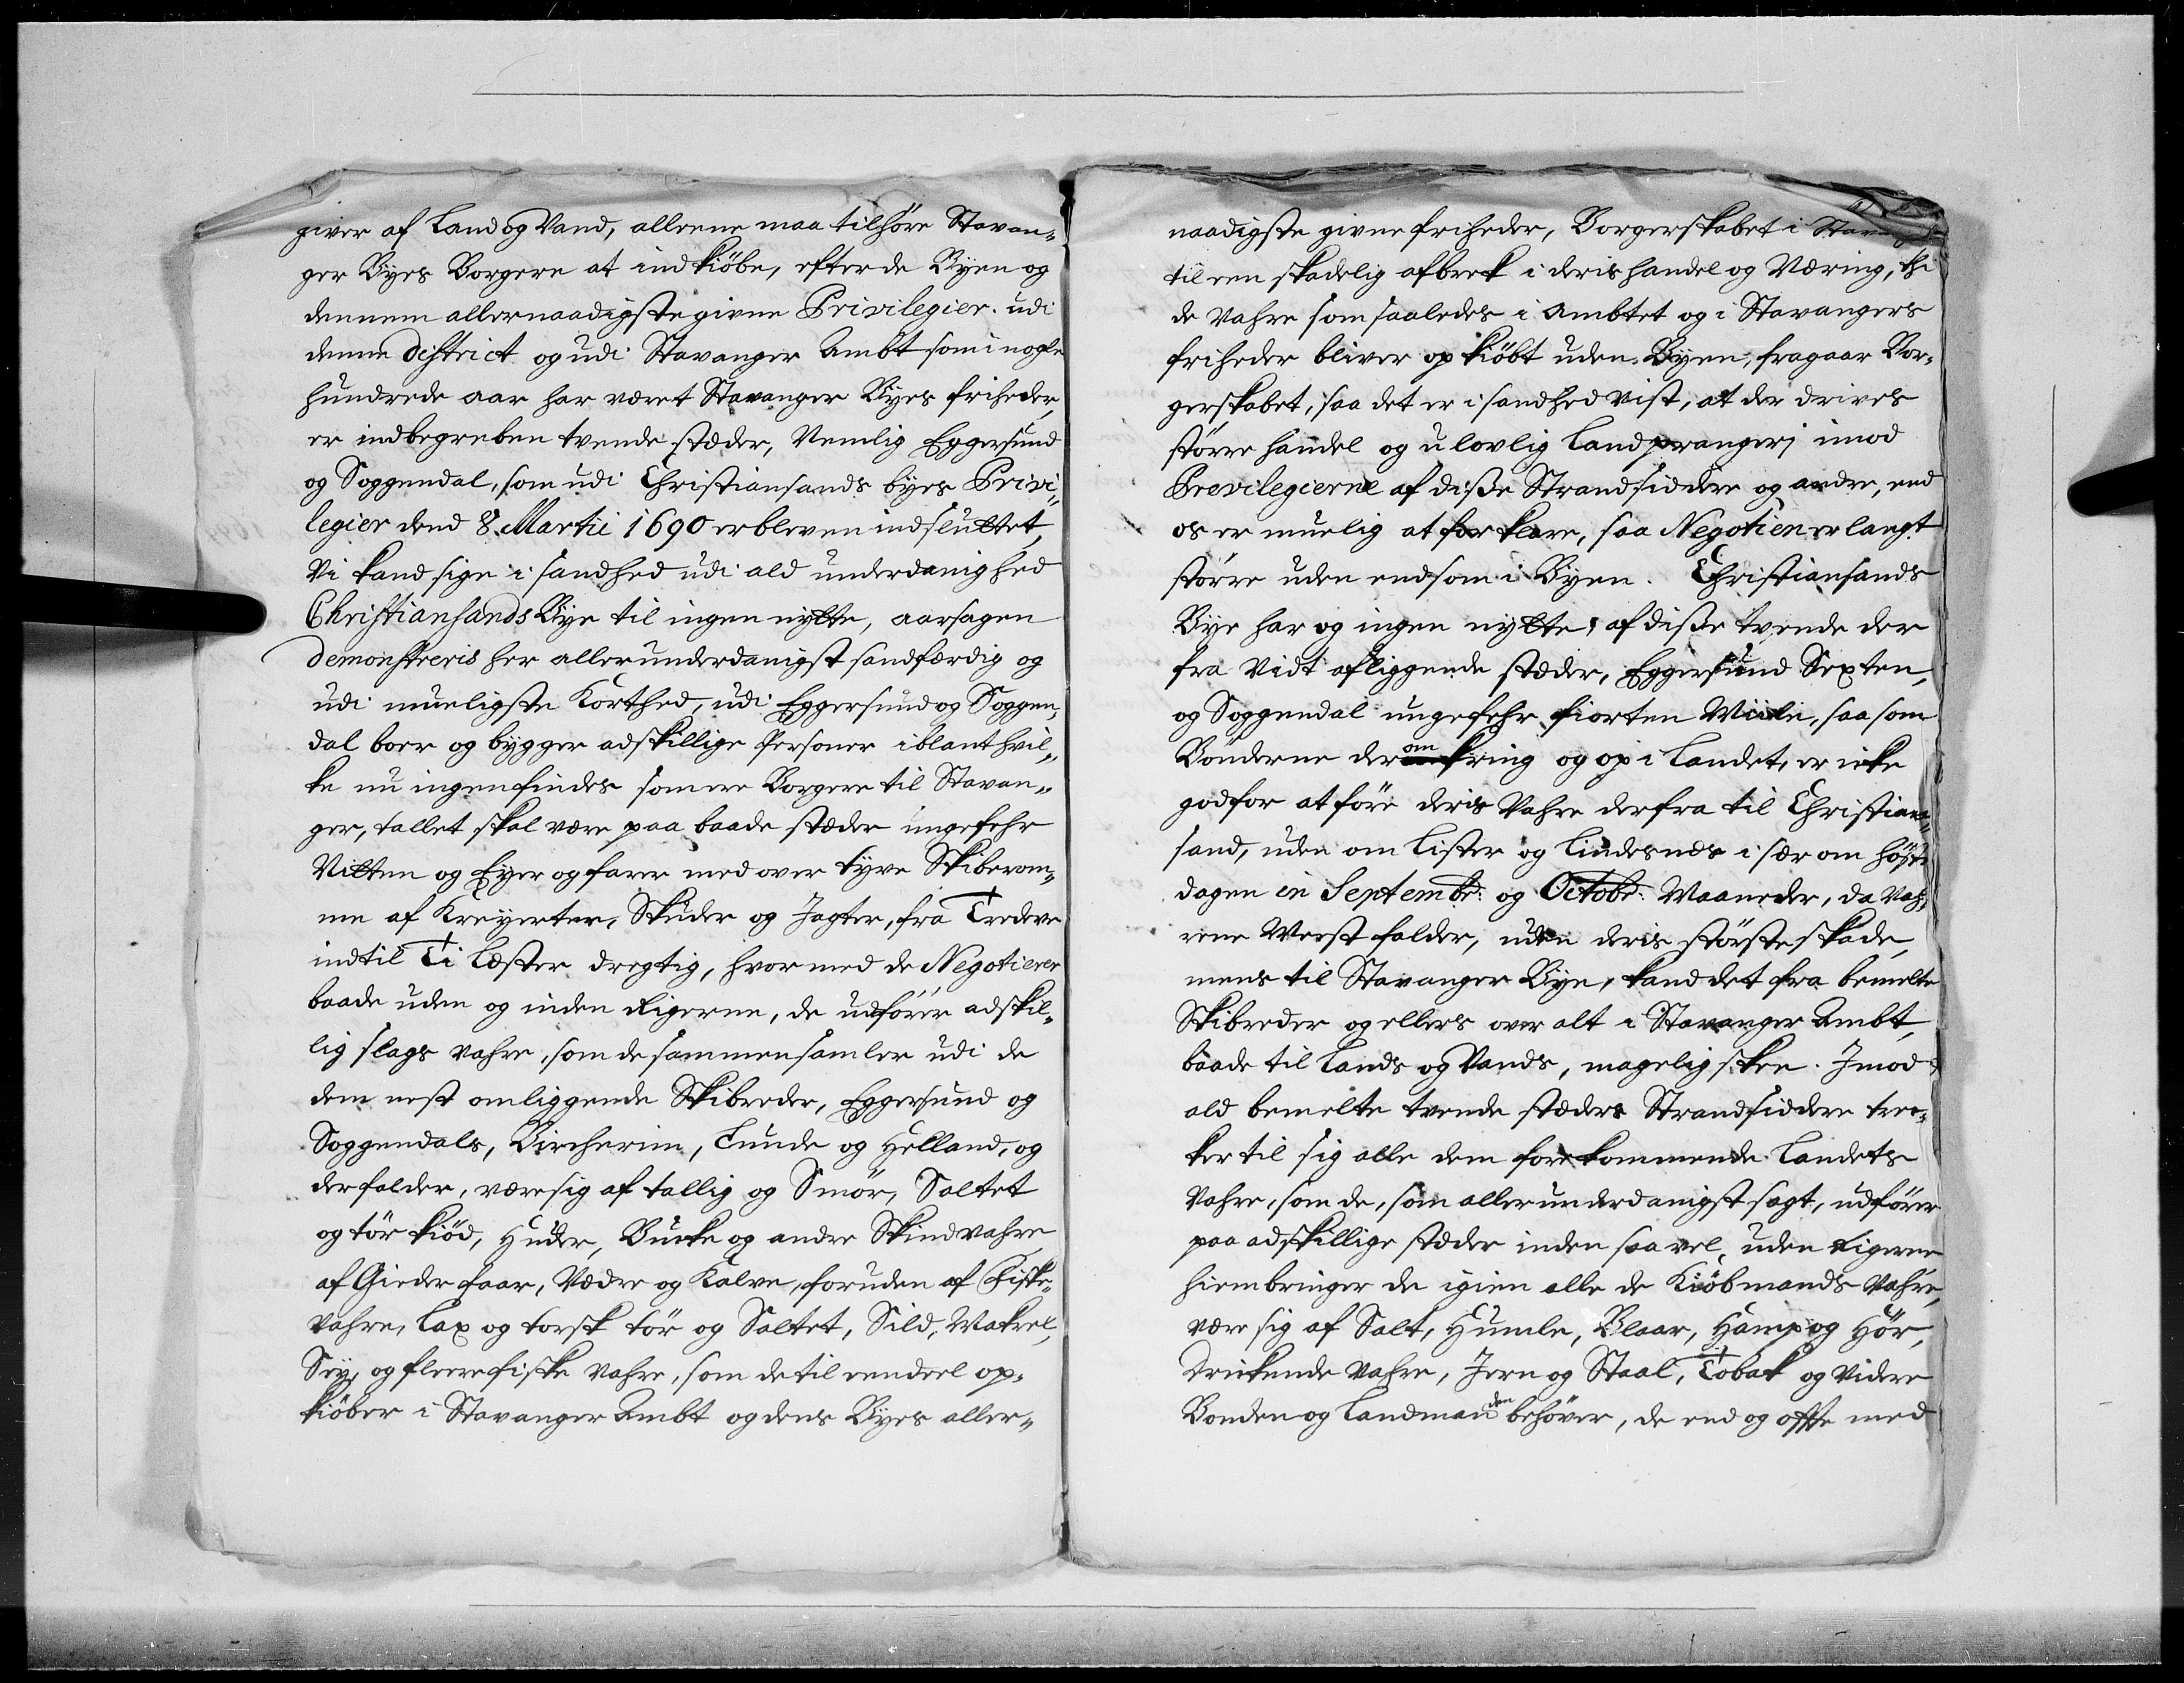 giver af Land og Vand, alleene maa tilhöre Stavan„
ger Byes Borgere at indkiöbe, efter de Byen og
dennem allernaadigste givne Privilegier. udi
denne district og udi Stavanger Ambt som i nogle
hundrede aar har været Stavanger Byes friheder,
er indbegreben tvende stæder, Nemlig Eggersund
og Soggendal, som udi Christiansands byes Privi„
legier dend 8. Martii 1690 er bleven indsluttet,
Vi kand sige i sandhed udi ald underdanighed
Christiansands Bye til ingen nytte, aarsagen
demonstreris her allerunderdanigst sandfærdig og
udi mueligste Korthed, udi Eggersund og Soggen„
dal boer og bygger adskillige Personer iblant hvil„
ke nu ingen findes som ere Borgere til Stavan„
ger, tallet skal være paa baade stæder ungefehr
Nitten og Eyer og farer med over tyve Skiberom„
me af Kreyerter, Skuder og Jagter, fra Tredeve
indtil Ti Læster dregtig, hvormed de Negotierer
baade uden og inden Rigerne, de udförer adskil„
lig slags vahre, som de sammensamler udi de
dem nest omliggende Skibreder, Eggersund og
Soggendals, Bircherim, Lunde og Helland, og
der falder, være sig af tallig og Smör, Saltet
og tör kiöd, Huder, Bucke og andre Skindvahre
af Gieder faar, Vædre og Kalve, foruden af Fiske„
vahre, Lax og torsk tör og Saltet, Sild, Makrel,
Sey, og fleere fiske vahre, som de til eendeel op„
kiöber i Stavanger Ambt og dens Byes aller„
naadigste givne friheder, Borgerskabet i
til een skadelig afbrek i deris handel og Næring, thi
de Vahre som saaledes i Ambtet og i Stavangers
friheder bliver opkiöbt uden Byen, fragaar Bor„
gerskabet, saa det er i sandhed vist, at der drives
större handel og ulovlig Landprangerj imod
Previlegierne af disse Strandsiddere og andre, end
os er muelig at forklare, saa Negotien er langt
större uden end som i Byen. Christiansands
Bye har og ingen nytte, af disse tvende der
fra vidt afliggende stæder, Eggersund Sexten,
og Soggendal ungefehr fiorten Miile, saa som
Bönderne der om kring og op i Landet, er icke
god for at före deris Vahre derfra til Christian„
sand, uden om Lister og Lindesnes i sær om höst
dagen in Septembr: og Octobr: Maaneder, da Vah„
rene Meest falder, uden deris störste skade,
mens til Stavanger Bye, kand det fra bemelte
Skibreder og ellers over alt i Stavanger Ambt,
baade til Lands og Vands, magelig skee. Imod
ald bemelte tvende stæders Strandsiddere trec„
ker til sig alle dem forekommende Landets
Vahre, som de, som allerunderdanigst sagt, udförer
paa adskillige stæder inden saa vel, uden Rigerne
hiembringer de igien alle de Kiöbmands Vahre,
være sig af Salt, Humle, Blaar, Hamp og Hör,
drickende vahre, Jern og Staal, Tobak og videre
Bonden og Landmanden behöver, de end og offte med